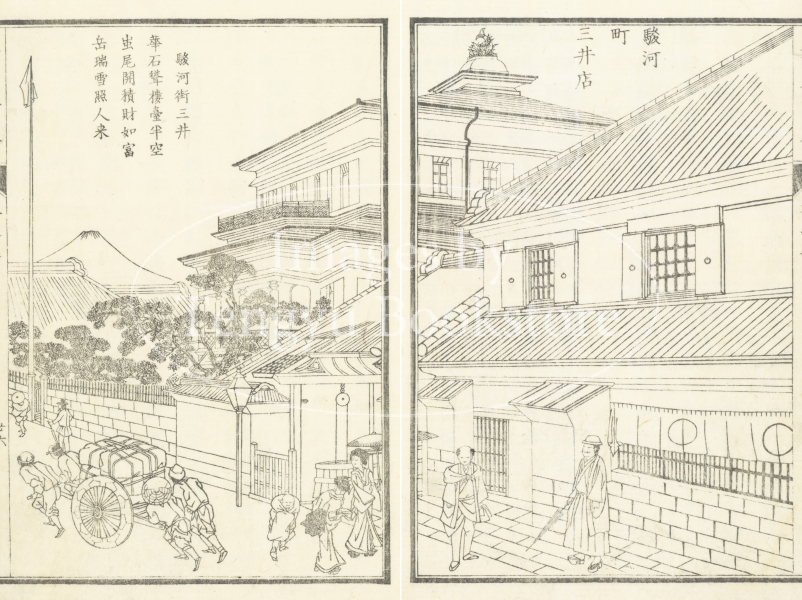 駿河
町
三井店
駿河街三井
華石聳樓臺半空
蚩尾開積財如富
岳瑞雪照人来
Image by
Tengyu Bookstore